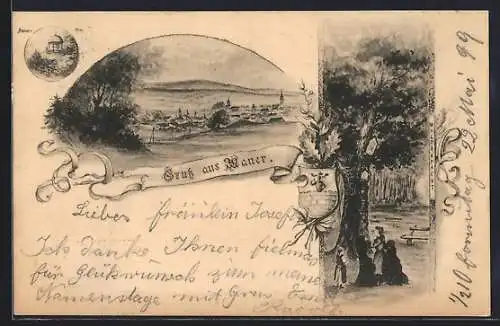 Gruß aus Mauer.
Liebes fräulein Josef
Ich danke Ihnen vielmals
für Glückwunsch zum meine
Namenstage mit Grus
1/2 10 vormittag 22 Mai 99